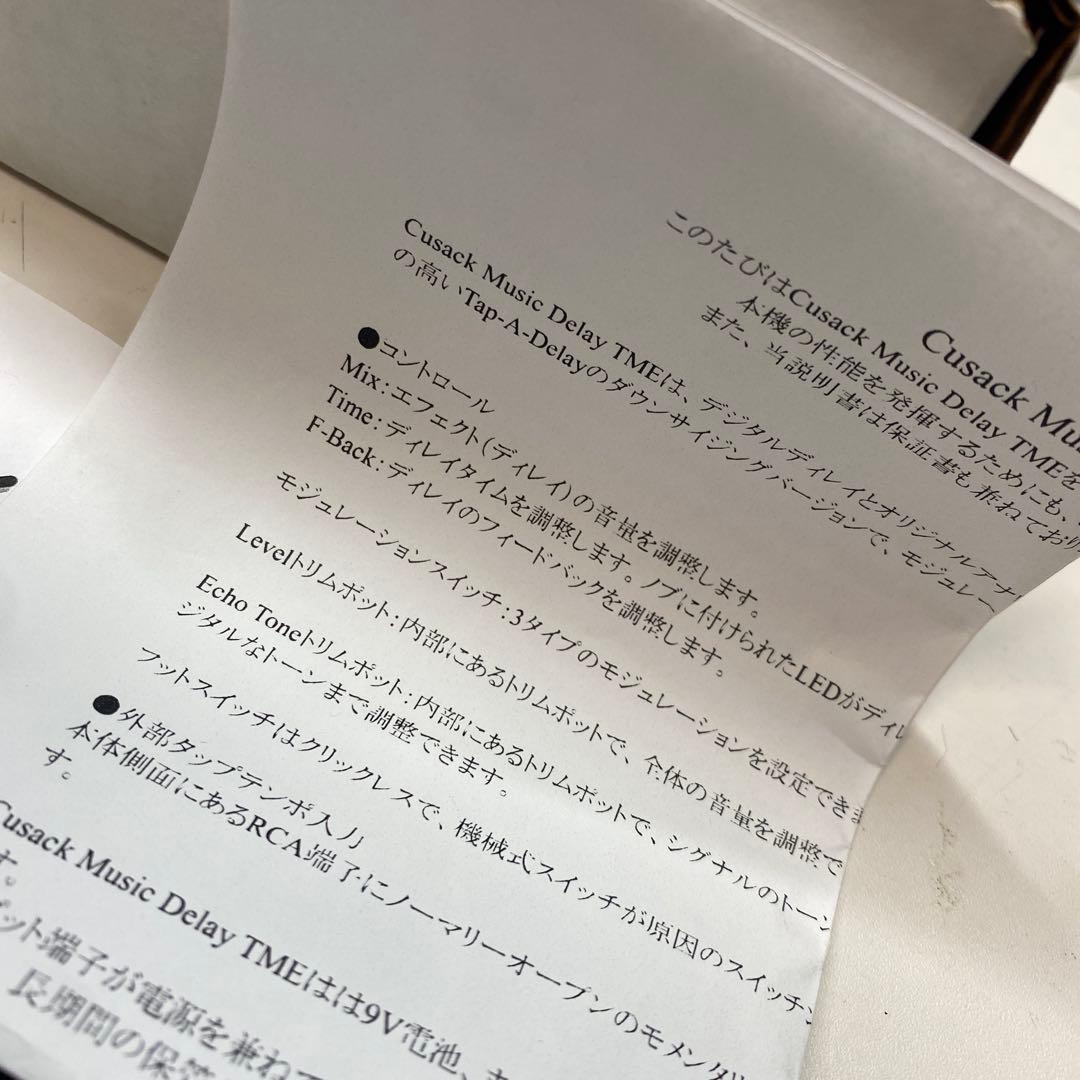 Cusack Mu
このたびはCusack Music Delay TMEを
本機の性能を発揮するためにも、
また、当説明書は保証書も兼ねており
Cusack Music Delay TMEは、デジタルディレイとオリジナルアナ
の高いTap-A-Delayのダウンサイジングバージョンで、モジュレー
●コントロール
Mix：エフェクト（ディレイ）の音量を調整します。
Time：ディレイタイムを調整します。ノブに付けられたLEDがディレ
F-Back：ディレイのフィードバックを調整します。
モジュレーションスイッチ：3タイプのモジュレーションを設定できま
Levelトリムポット：内部にあるトリムポットで、全体の音量を調整で
Echo Toneトリムポット：内部にあるトリムポットで、シグナルのトーン
ジタルなトーンまで調整できます。
フットスイッチはクリックレスで、機械式スイッチが原因のスイッチン
●外部タップテンポ入力
本体側面にあるRCA端子にノーマリーオープンのモメンタリ
す。
Cusack Music Delay TMEはは9V電池、
す。
ット端子が電源を兼ねて
長期間の保管